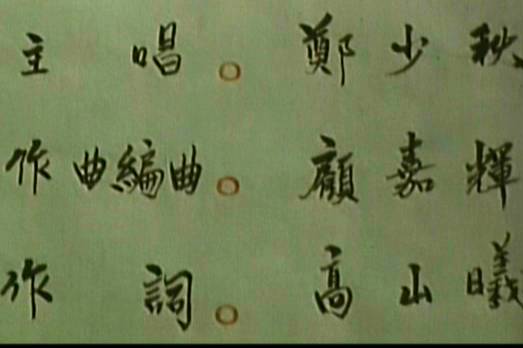 主唱。鄭少秋
作曲編曲。顧嘉輝
作詞。高山曦